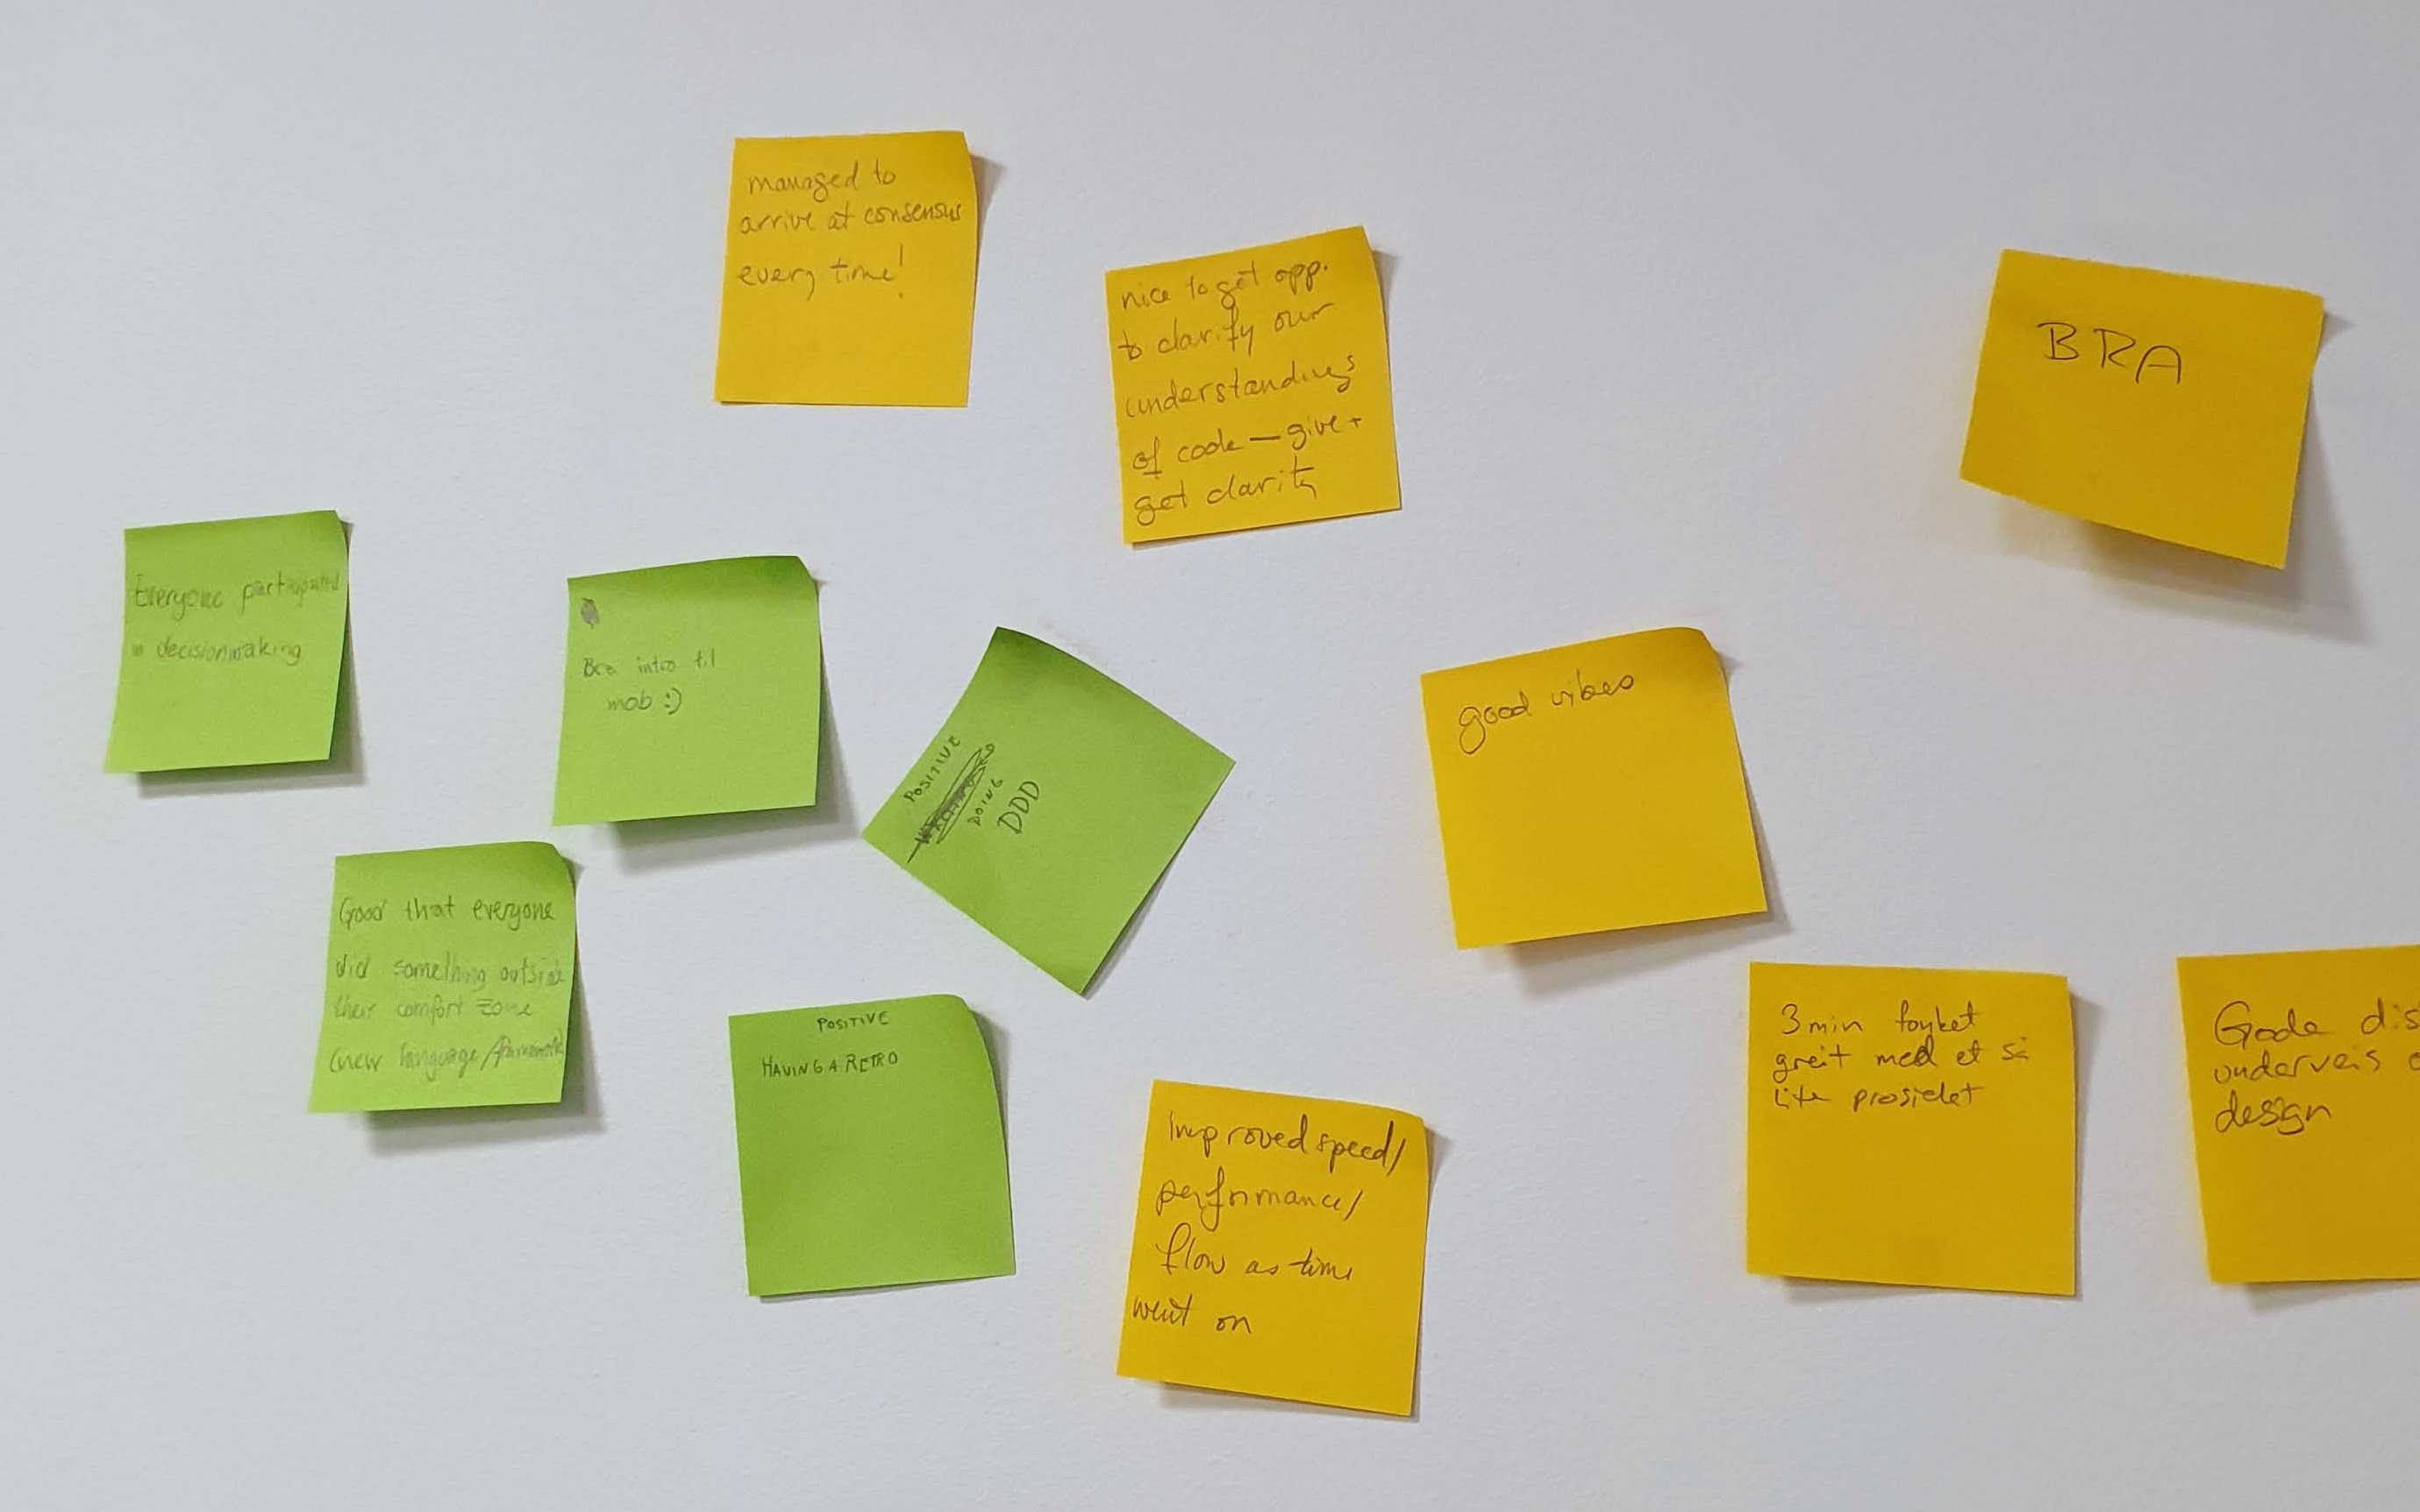 managed to
arrive at consensus
every time!
nice to get opp.
to clarify our
understandings
of code — give +
get clarity
BRA
Everyone participated
in decisionmaking
Bra intro til
mob :)
POSITIVE
DOING
DDD
good vibes
Good that everyone
did something outside
their comfort zone
(new language/framework)
POSITIVE
HAVING A RETRO
Improved speed/
performance/
flow as time
went on
3 min
greit med et så
lite prosjektet
Gode dis
underveis
design